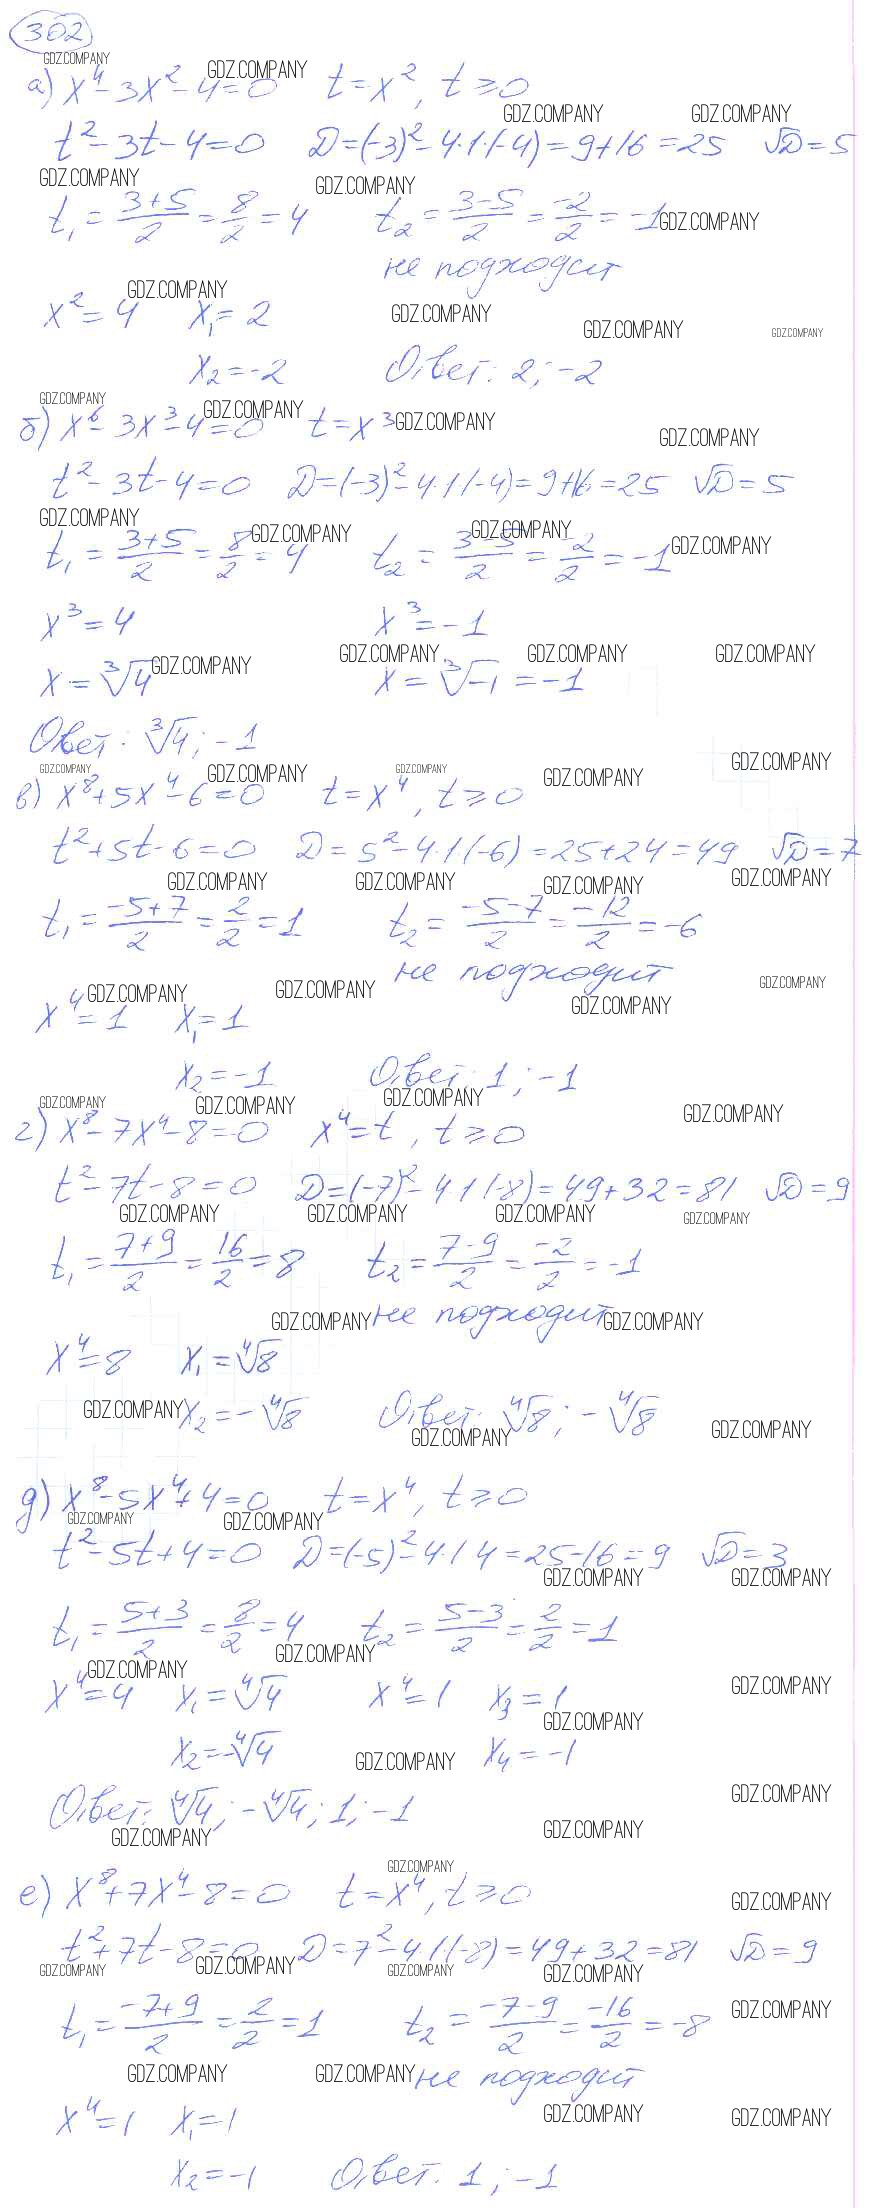 302
а) x⁴ - 3x² - 4 = 0   t = x², t ≥ 0
t² - 3t - 4 = 0   D = (-3)² - 4·1·(-4) = 9 + 16 = 25   √D = 5
t₁ = (3+5)/2 = 8/2 = 4   t₂ = (3-5)/2 = -2/2 = -1
не подходит
x² = 4   x₁ = 2
x₂ = -2   Ответ: 2; -2
б) x⁶ - 3x³ - 4 = 0   t = x³
t² - 3t - 4 = 0   D = (-3)² - 4·1·(-4) = 9 + 16 = 25   √D = 5
t₁ = (3+5)/2 = 8/2 = 4   t₂ = (3-5)/2 = -2/2 = -1
x³ = 4   x³ = -1
x = ∛4   x = ∛-1 = -1
Ответ: ∛4; -1
в) x⁸ + 5x⁴ - 6 = 0   t = x⁴, t ≥ 0
t² + 5t - 6 = 0   D = 5² - 4·1·(-6) = 25 + 24 = 49   √D = 7
t₁ = (-5+7)/2 = 2/2 = 1   t₂ = (-5-7)/2 = -12/2 = -6
не подходит
x⁴ = 1   x₁ = 1
x₂ = -1   Ответ: 1; -1
г) x⁸ - 7x⁴ - 8 = 0   x⁴ = t, t ≥ 0
t² - 7t - 8 = 0   D = (-7)² - 4·1·(-8) = 49 + 32 = 81   √D = 9
t₁ = (7+9)/2 = 16/2 = 8   t₂ = (7-9)/2 = -2/2 = -1
не подходит
x⁴ = 8   x₁ = ∜8
x₂ = -∜8   Ответ: ∜8; -∜8
д) x⁸ - 5x⁴ + 4 = 0   t = x⁴, t ≥ 0
t² - 5t + 4 = 0   D = (-5)² - 4·1·4 = 25 - 16 = 9   √D = 3
t₁ = (5+3)/2 = 8/2 = 4   t₂ = (5-3)/2 = 2/2 = 1
x⁴ = 4   x₁ = ∜4   x⁴ = 1   x₃ = 1
x₂ = -∜4   x₄ = -1
Ответ: ∜4; -∜4; 1; -1
е) x⁸ + 7x⁴ - 8 = 0   t = x⁴, t ≥ 0
t² + 7t - 8 = 0   D = 7² - 4·1·(-8) = 49 + 32 = 81   √D = 9
t₁ = (-7+9)/2 = 2/2 = 1   t₂ = (-7-9)/2 = -16/2 = -8
не подходит
x⁴ = 1   x₁ = 1
x₂ = -1   Ответ: 1; -1
GDZ.COMPANY